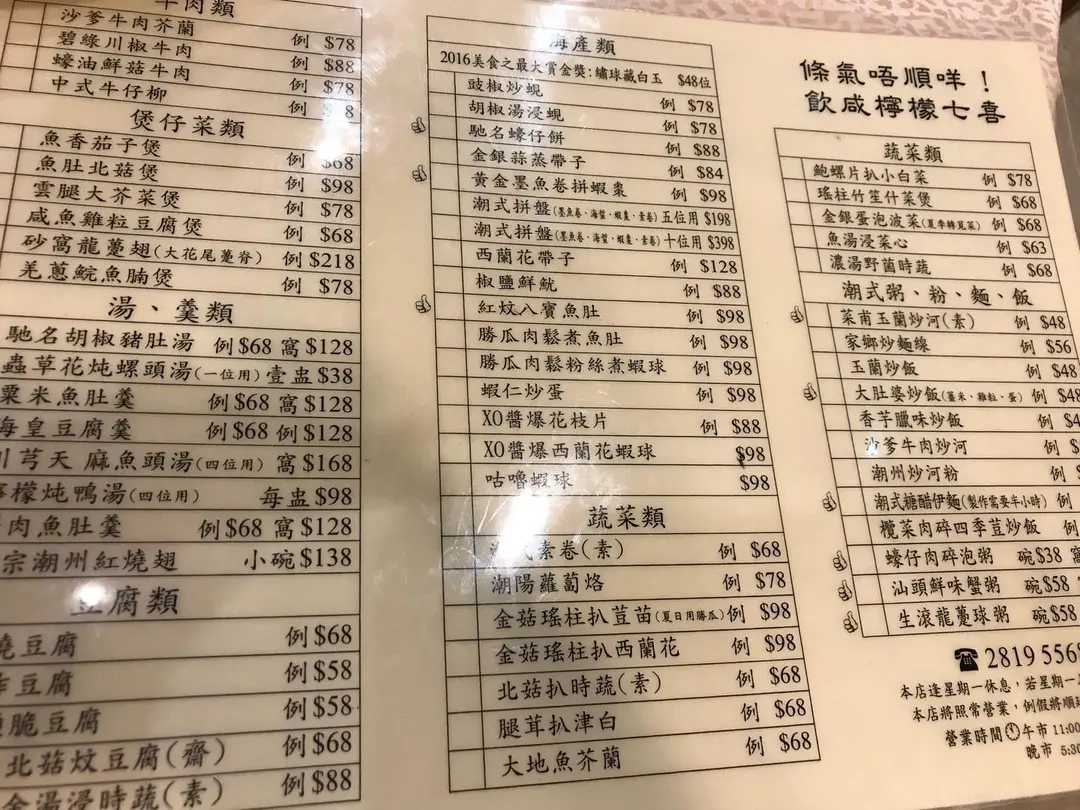 牛肉類
沙爹牛肉芥蘭 例 $78
碧綠川椒牛肉 例 $88
蠔油鮮菇牛肉 例 $78
中式牛仔柳 例
煲仔菜類
魚香茄子煲 例 $68
魚肚北菇煲 例 $98
雲腿大芥菜煲 例 $78
咸魚雞粒豆腐煲 例 $68
砂窩龍躉翅(大花尾躉脊) 例 $218
羌蔥鯇魚腩煲 例 $78
湯、羹類
馳名胡椒豬肚湯 例$68 窩$128
蟲草花炖螺頭湯(一位用) 壹盅$38
粟米魚肚羹 例$68 窩$128
海皇豆腐羹 例$68 例$128
川芎天麻魚頭湯(四位用) 窩$168
檸檬炖鴨湯(四位用) 每盅$98
肉魚肚羹 例$68 窩$128
宗潮州紅燒翅 小碗$138
豆腐類
燒豆腐 例$68
炸豆腐 例$58
脆豆腐 例$58
北菇炆豆腐(齋) 例$68
金湯浸時蔬(素) 例$88
海產類
2016美食之最大賞金獎:繡球藏白玉 $48位
豉椒炒蜆 例 $78
胡椒湯浸蜆 例 $78
馳名蠔仔餅 例 $88
金銀蒜蒸帶子 例 $84
黃金墨魚卷拼蝦棗 例 $98
潮式拼盤(墨魚卷、海蜇、蝦棗、素卷) 五位用 $198
潮式拼盤(墨魚卷、海蜇、蝦棗、素卷) 十位用 $398
西蘭花帶子 例 $128
椒鹽鮮魷 例 $88
紅炆八寶魚肚 例 $98
勝瓜肉鬆煮魚肚 例 $98
勝瓜肉鬆粉絲煮蝦球 例 $98
蝦仁炒蛋 例 $98
XO醬爆花枝片 例 $88
XO醬爆西蘭花蝦球 $98
咕嚕蝦球 $98
蔬菜類
素卷(素) 例 $68
潮陽蘿蔔烙 例 $78
金菇瑤柱扒荳苗(夏日用勝瓜) 例 $98
金菇瑤柱扒西蘭花 例 $98
北菇扒時蔬(素) 例 $68
腿茸扒津白 例 $68
大地魚芥蘭 例 $68
條氣唔順咩！
飲咸檸檬七喜
蔬菜類
鮑螺片扒小白菜 例 $78
瑤柱竹笙什菜煲 例 $68
金銀蛋泡波菜(夏季轉莧菜) 例 $68
魚湯浸菜心 例 $63
濃湯野菌時蔬 例 $68
潮式粥、粉、麵、飯
菜甫玉蘭炒河(素) 例 $48
家鄉炒麵線 例 $56
玉蘭炒飯 例 $48
大肚婆炒飯(薑米、雞粒、蛋) 例 $48
香芋臘味炒飯 例 $4
沙爹牛肉炒河 例 $
潮州炒河粉 例 $
潮式糖醋伊麵(製作需要半小時) 例
欖菜肉碎四季荳炒飯 例
蠔仔肉碎泡粥 碗$38 窩
汕頭鮮味蟹粥 碗$58
生滾龍躉球粥 碗$58
☎ 2819 5568
本店逢星期一休息，若星期一
本店將照常營業，例假將順
營業時間 午市 11:00
晚市 5:30